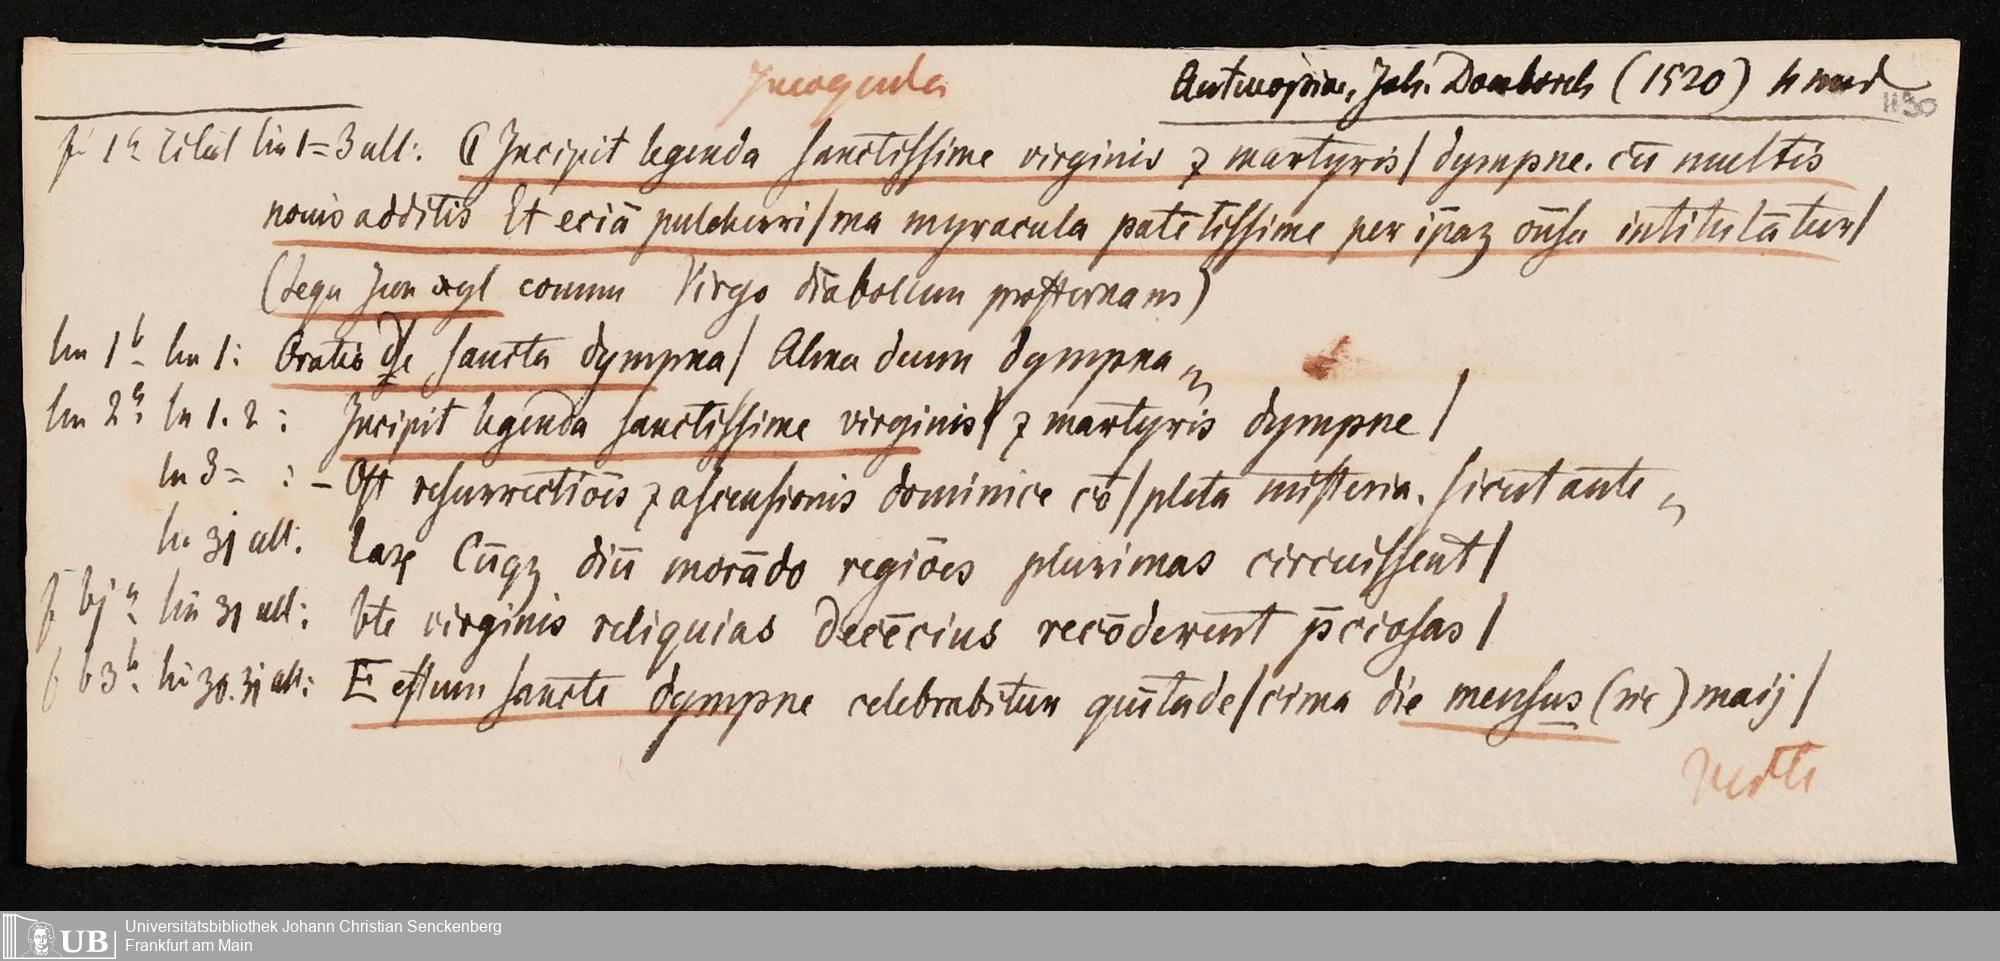 Antuerpiae, Joh. Doesborch (1520)
1130
f 1a Titul lin 1=3 all: ₵ Incipit legenda sanctissime virginis ⁊ martyris/ dympne. cū multis
nouis additis Et eciā pulcherri/ma myracula patētissime per ip̄aʒ om̄sa intitulātur/
(sequ Icon xyl comm Virgo diabolum prosternans)
lin 1b lin 1: Oratio de sancta dympna/ Alma deum dympna
lin 2a ln 1. 2: Incipit legenda sanctissime virginis/ ⁊ martyris dympne/
ln 3= : – Ost resurrectiōis ⁊ ascensionis dominice cō/pleta misteria. sicut ante
ln 31 all. Cūqʒ diū morādo regiōes plurimas circuissent/
f bj a lin 31 all: bte virginis reliquias decēcius recōderent p̄ciosas/
f b3b lin 30. 31 all: Festum sancte dympne celebrabitur quītade/cima die mensus (sic) maij/
verte
UB
Universitätsbibliothek Johann Christian Senckenberg
Frankfurt am Main